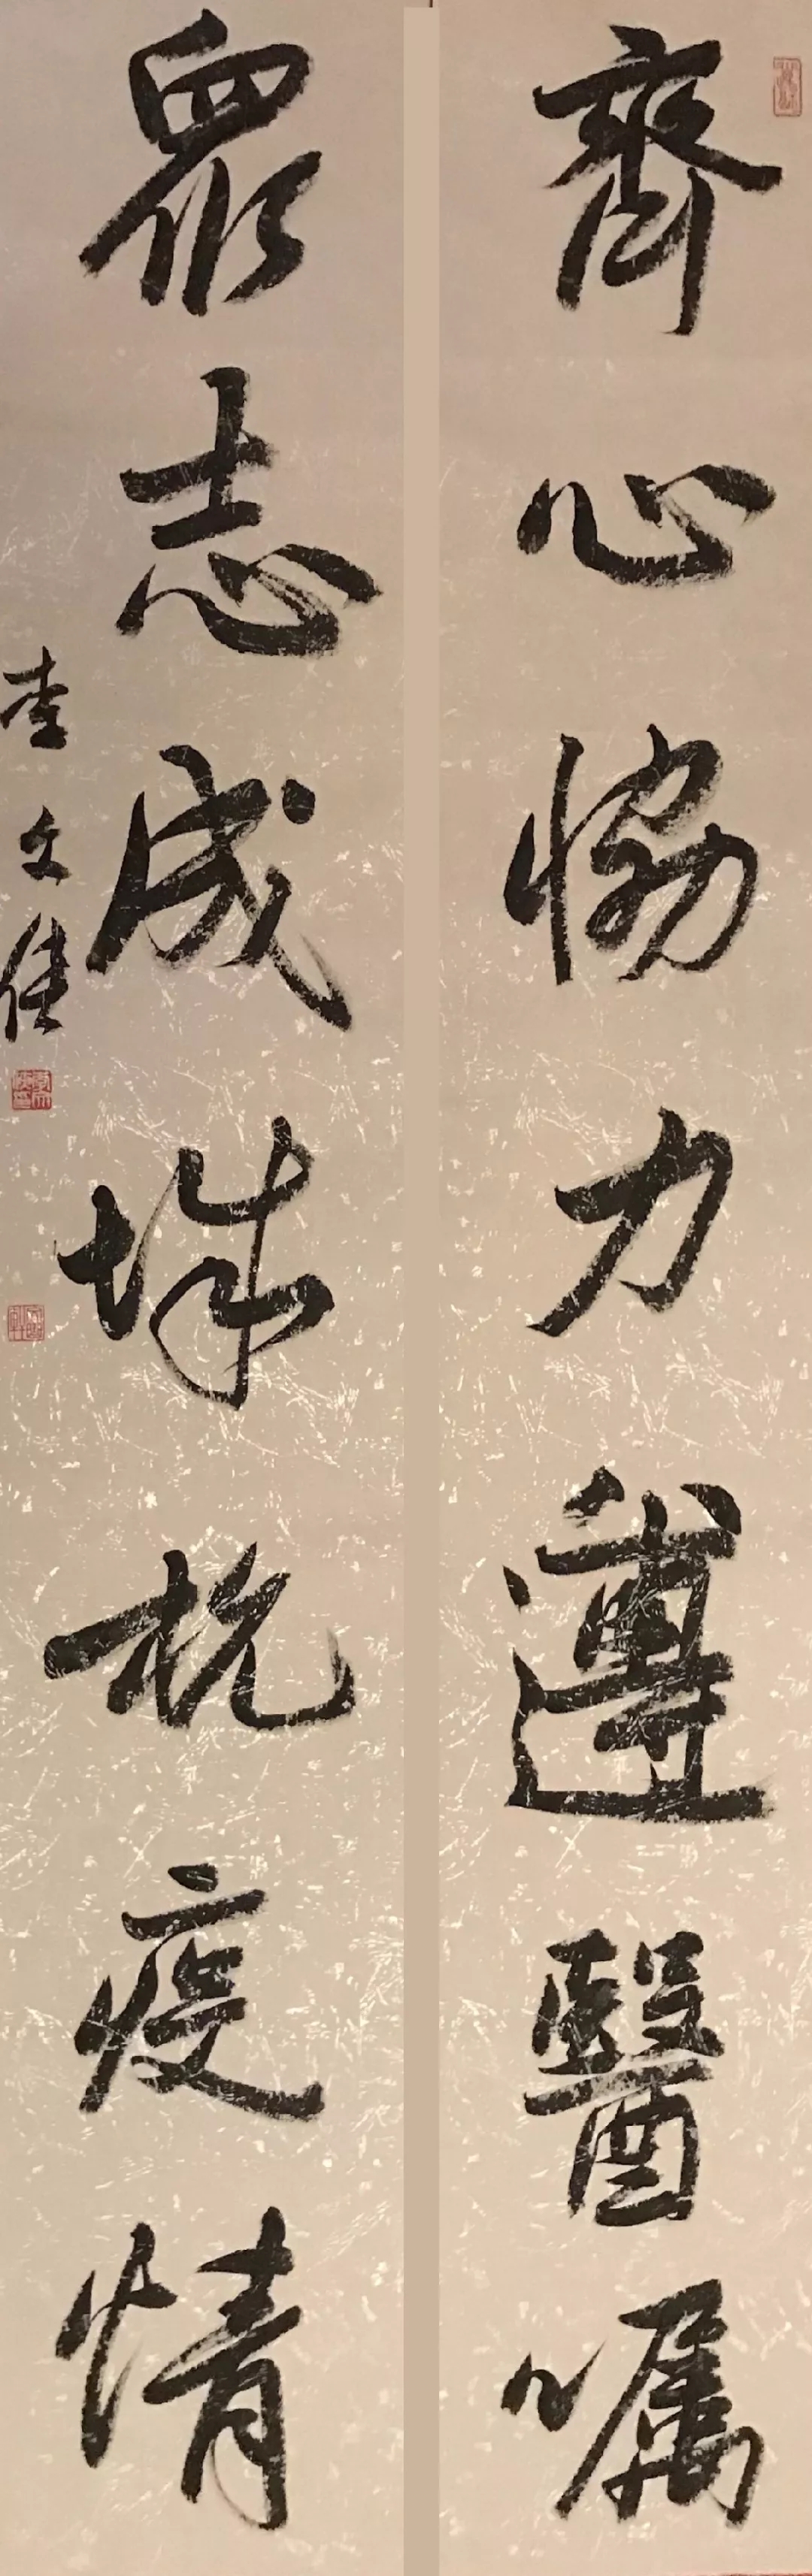 齊心協力遵醫囑
眾志成城抗疫情
李文佳